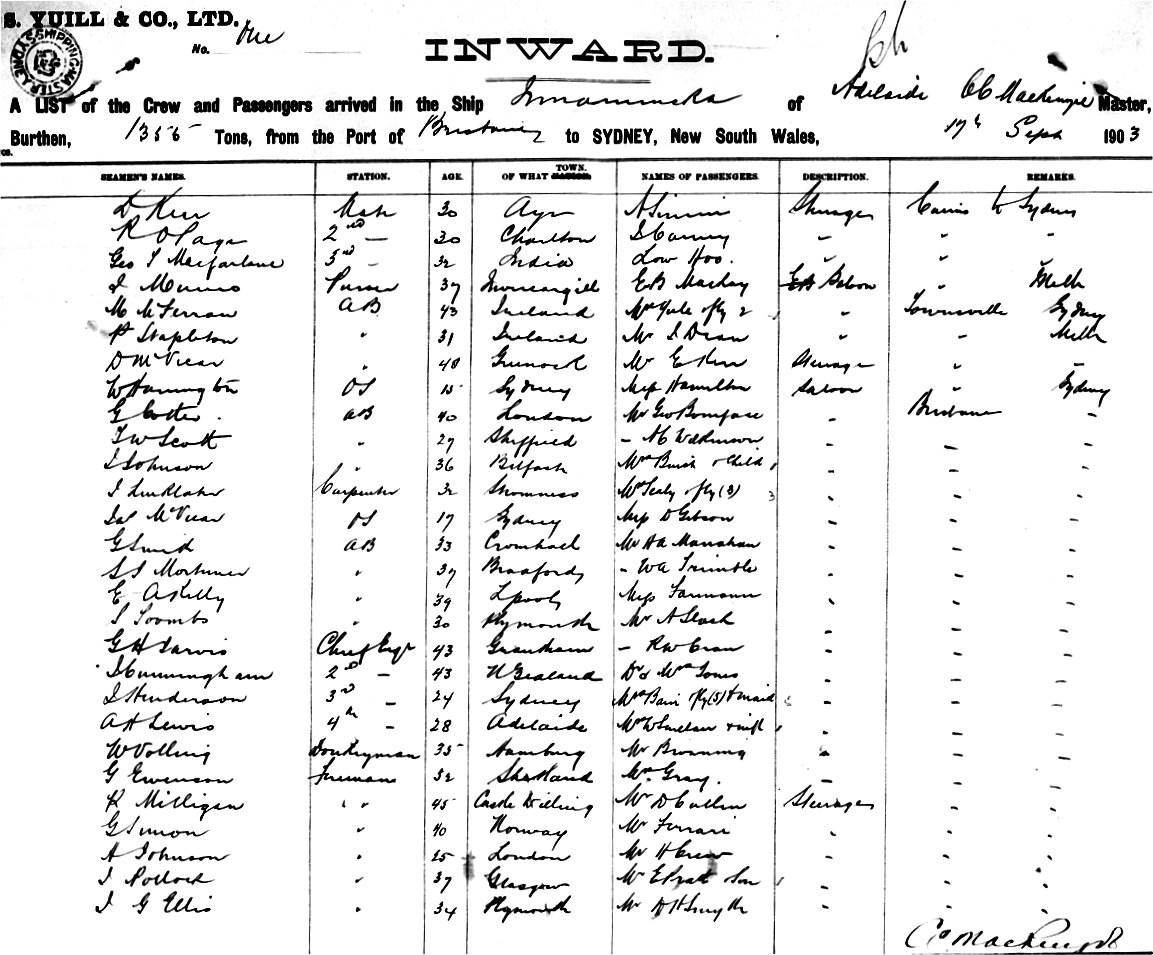 S. YUILL & CO., LTD.
No. One
SYDNEY SHIPPING MASTER
INWARD.
A LIST of the Crew and Passengers arrived in the Ship Innamincka of Adelaide CC Mackenzie Master,
Burthen, Tons, from the Port of Brisbane to SYDNEY, New South Wales, 17th Sept 1903
SEAMEN'S NAMES. STATION. AGE. OF WHAT TOWN. NAMES OF PASSENGERS. DESCRIPTION. REMARKS.
D Kerr Mate 30 Ayr Steerage Cairns to Sydney
R O Page 2nd — 30 Charlton " " "
Geo S Macfarlane 3rd — 32 India Low Hoo. " " "
J Munro Purser 37 Invercargill E B Mackay Saloon " Melb
M McFerran AB 43 Ireland Mrs fly 2 " Townsville Sydney
P Stapleton " 31 Ireland Mr J Dean " " Melb
D McVicar " 48 Greenock Mr E Kerr Steerage " "
W Harrington OS Sydney Miss Hamilton Saloon " Sydney
G Cotter. AB 40 London Mr Geo Boniface " Brisbane "
T W Scott " Sheffield — A C Wilkinson " " "
J Johnson " 36 Belfast Mrs & Child " " "
J Linklater Carpenter 32 Stromness Mrs Sealy & fly (3) 3 " " "
Jas McVicar OS 17 Sydney Miss D Gibson " " "
G AB 33 Mr " " "
S S Mortimer " 37 Bradford — W A Trimble " " "
E A Kelly " 39 Lpool Miss " " "
S Toombs " 30 Plymouth Mr A Slack " " "
G H Jarvis Chief Engr 43 Grantham — R W " " "
J Cunningham 2nd — 43 N Zealand Dr & Mrs Jones " " "
J Henderson 3rd — 24 Sydney Mrs fly (3) & maid " " "
A H Lewis 4th — 28 Adelaide Mr W Sinclair " " "
W Volling Donkeyman 35 Hamburg Mr Browning " " "
G Ewenson Firemans 32 Shetland Mrs Gray. " " "
R Milligan " " 45 Castle Mr D Steerage " "
G Simon " 40 Norway Mr Ferrari " " "
A Johnson " 25 London Mr H Crew " " "
J Pollock " 37 Glasgow Mr E Son " " "
J G Ellis " 34 Plymouth Mr D H Smyth " " "
CC Mackenzie